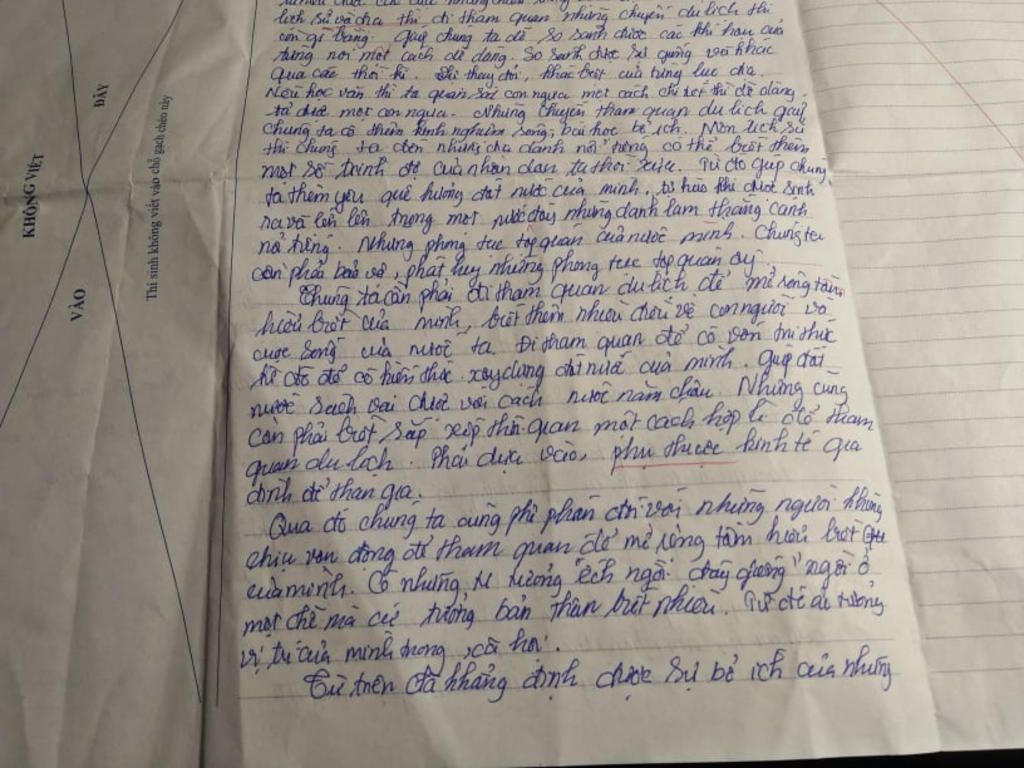 KHÔNG VIẾT
VÀO
ĐÂY
Thí sinh không viết vào chỗ gạch chéo này
lịch sử và địa thì đi tham quan những chuyến du lịch thì
còn gì bằng. Giúp chúng ta dễ so sánh được các khí hậu của
từng nơi một cách dễ dàng. So sánh được sự giống và khác
qua các thời kì. thay đổi, khác biệt của từng lục địa.
Nếu học văn thì ta quan sát con người một cách chi tiết thì dễ dàng
tả được một con người. Những chuyến tham quan du lịch giúp
chúng ta có thêm kinh nghiệm sống, bài học bổ ích. Môn lịch sử
thì chúng ta đến những địa danh nổi tiếng có thể biết thêm
một số trình độ của nhân dân ta thời xưa. Từ đó giúp chúng
ta thêm yêu quê hương đất nước của mình, tự hào khi được sinh
ra và lớn lên trong một nước đầy những danh lam thắng cảnh
nổ tiếng. Những phong tục tập quán của nước mình. Chúng ta
cần phải bảo vệ, phát huy những phong tục tập quán ấy.
Chúng ta cần phải đi tham quan du lịch để mở rộng tầm
hiểu biết của mình, biết thêm nhiều điều về con người và
cuộc sống của nước ta. Đi tham quan để có vốn tri thức
từ đó để có kiến thức xây dựng đất nước của mình. Giúp đất
nước sánh vai được với cách nước năm châu. Nhưng cũng
cần phải biết sắp xếp thời quan một cách hợp lí để tham
quan du lịch. Phải dựa vào, phụ thuộc kinh tế qua
đình để than gia.
Qua đó chúng ta cũng phê phán đối với những người không
chịu vận động để tham quan để mở rộng tầm hiểu biết
của mình. Có những tư tưởng "ếch ngồi đáy giếng" ngồi ở
một chỗ mà cứ tưởng bản thân biết nhiều. Từ đó ảo tưởng
vị trí của mình trong xã hội.
Từ trên đã khẳng định được sự bổ ích của những